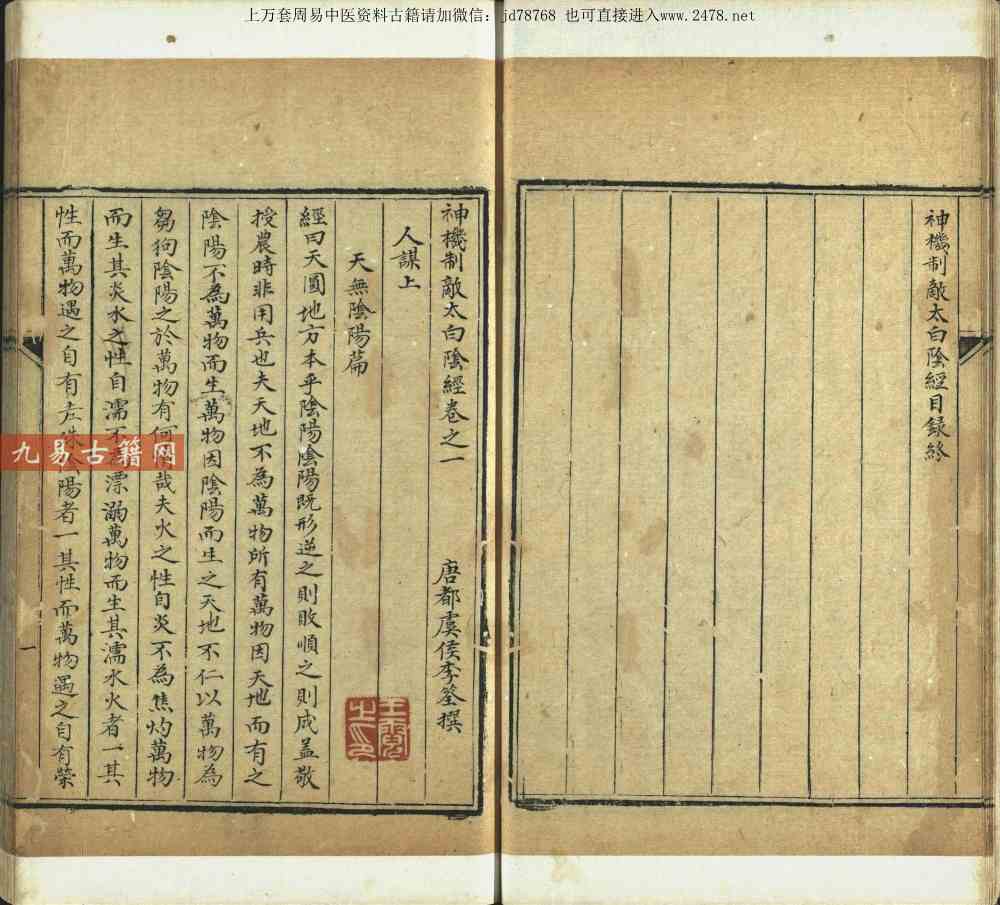 上万套周易中医资料古籍请加微信：jd78768 也可直接进入www.2478.net
神機制敵太白陰經目録終
神機制敵太白陰經卷之一
唐都虞侯李筌撰
人謀上
天無陰陽篇
經曰天圓地方本乎陰陽陰陽既形逆之則敗順之則成盖敬
授農時非用兵也夫天地不為萬物所有萬物因天地而有之
陰陽不為萬物而生萬物因陰陽而生之天地不仁以萬物為
芻狗陰陽之於萬物有何哉夫火之性自炎不為焦灼萬物
而生其炎水之性自濡不漂溺萬物而生其濡水火者一其
性而萬物遇之自有陽者一其性而萬物遇之自有榮
一
九易古籍网